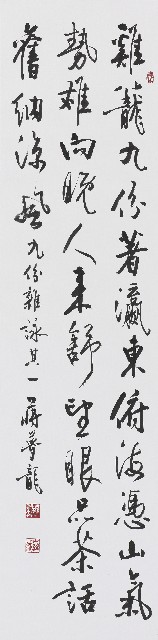 雞籠九份著瀛東俯海憑山氣
勢雄向晚人來舒望眼品茶話
舊納涼風九份雜詠其一蔣夢龍